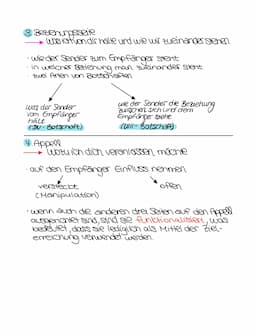 ③ Beziehungsseite
→ Was ich von dir halte und wie wir zueinander stehen
· wie der Sender zum Empfänger steht
· in welcher Beziehung man zueinander steht
· zwei Arten von Botschaften
was der Sender vom Empfänger hält (Du-Botschaft)
wie der Sender die Beziehung zwischen sich und dem Empfänger sieht (Wir-Botschaft)
④ Appell
→ Wozu ich dich veranlassen möchte
· auf den Empfänger Einfluss nehmen
versteckt (Manipulation)
offen
· wenn auch die anderen drei Seiten auf den Appell
ausgerichtet sind, sind sie funktionalisiert, was
bedeutet, dass sie lediglich als Mittel der Ziel-
erreichung verwendet werden